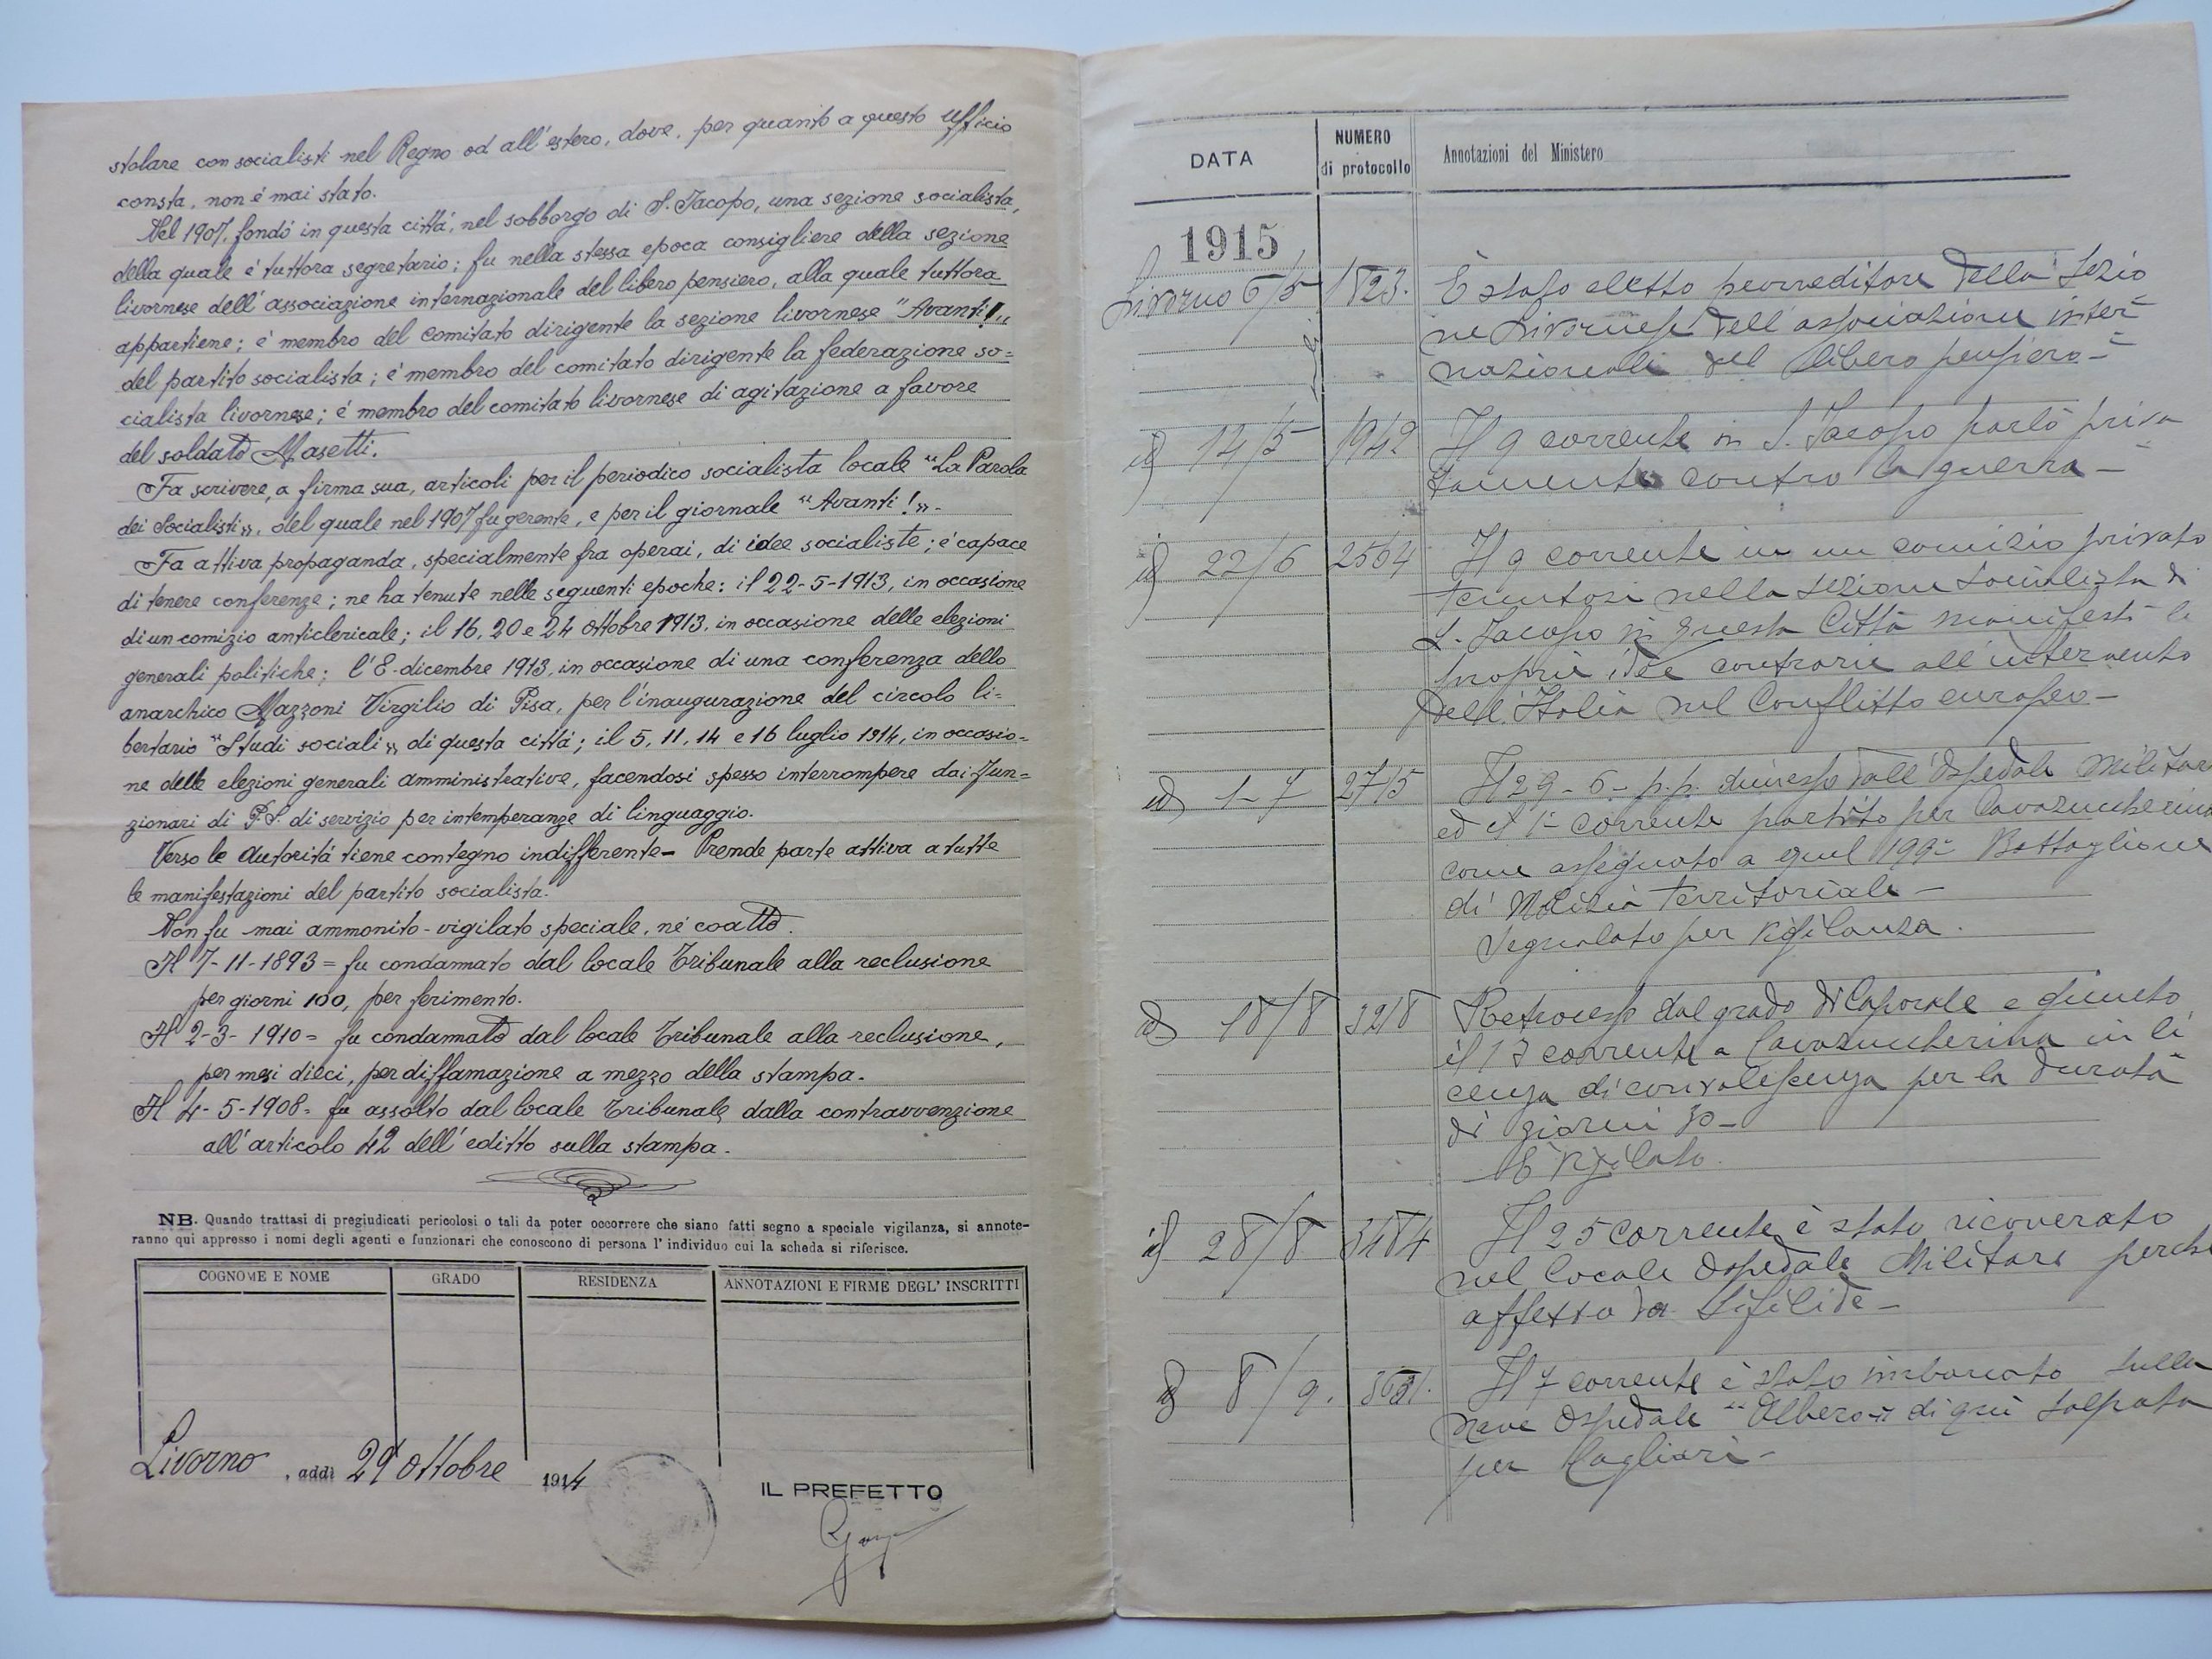 stolare con socialisti nel Regno od all'estero, dove, per quanto a questo Ufficio
consta, non é mai stato.
Nel 1907, fondó in questa cittá, nel sobborgo di S. Jacopo, una sezione socialista,
della quale é tuttora segretario; fu nella stessa epoca consigliere della sezione
livornese dell'associazione internazionale del libero pensiero, alla quale tuttora
appartiene; é membro del comitato dirigente la sezione livornese "Avanti!„
del partito socialista; é membro del comitato dirigente la federazione so=
cialista livornese; é membro del comitato livornese di agitazione a favore
del soldato Masetti.
Fa scrivere, a firma sua, articoli per il periodico socialista locale "La Parola
dei Socialisti», del quale nel 1907 fu gerente, e per il giornale "Avanti!».-
Fa attiva propaganda, specialmente fra operai, di idee socialiste; é capace
di tenere conferenze; ne ha tenute nelle seguenti epoche: il 22-5-1913, in occasione
di un comizio anticlericale; il 16, 20 e 24 ottobre 1913, in occasione delle elezioni
generali politiche; l'8-dicembre 1913, in occasione di una conferenza dello
anarchico Mazzoni Virgilio di Pisa, per l'inaugurazione del circolo li=
bertario "Studi sociali» di questa cittá; il 5, 11, 14 e 16 luglio 1914, in occasio=
ne delle elezioni generali amministrative, facendosi spesso interrompere dai fun=
zionari di P.S. di servizio per intemperanze di linguaggio.
Verso le Autoritá tiene contegno indifferente- Prende parte attiva a tutte
le manifestazioni del partito socialista.
Non fu mai ammonito-vigilato speciale, né coatto.
Il 7-11-1893= fu condannato dal locale Tribunale alla reclusione
per giorni 100, per ferimento.
Il 2-3-1910= fu condannato dal locale Tribunale alla reclusione,
per mesi dieci, per diffamazione a mezzo della stampa.
Il 4-5-1908= fu assolto dal locale Tribunale dalla contravvenzione
all'articolo 42 dell'editto sulla stampa.
NB. Quando trattasi di pregiudicati pericolosi o tali da poter occorrere che siano fatti segno a speciale vigilanza, si annote-
ranno qui appresso i nomi degli agenti e funzionari che conoscono di persona l'individuo cui la scheda si riferisce.
COGNOME E NOME GRADO RESIDENZA ANNOTAZIONI E FIRME DEGL'INSCRITTI
Livorno, addì 29 Ottobre 1914
IL PREFETTO
DATA NUMERO di protocollo Annotazioni del Ministero
1915
Livorno 6/5 1823. È stato eletto della Sezio
ne Livornese dell'associazione inter
nazionale del libero pensiero-
id) 14/5 1942 Il 9 corrente in S. Jacopo parlò priva
tamente contro la guerra-
id) 22/6 2564 Il 9 corrente in un comizio privato
tenutosi nella sezione socialista di
S. Jacopo in questa Città manifestò le
proprie idee contrarie all'intervento
dell'Italia nel Conflitto europeo-
id) 1-7 2715 Il 29-6-p.p. dimesso dall'Ospedale Militare
ed il 1° corrente partito per Cavazuccherina
come assegnato a quel 199° Battaglione
di Milizia Territoriale-
Segnalato per vigilanza.
id) 18/8 3218 Retrocesso dal grado di Caporale e giunto
il 17 corrente a Cavazuccherina in li
cenza di convalescenza per la durata
di giorni 30-
È vigilato.
id) 28/8 3484 Il 25 corrente è stato ricoverato
nel locale Ospedale Militare perché
affetto da Sifilide-
id) 8/9. Il 7 corrente è stato imbarcato sulla
Nave Ospedale "Albaro" di qui salpata
per Cagliari-